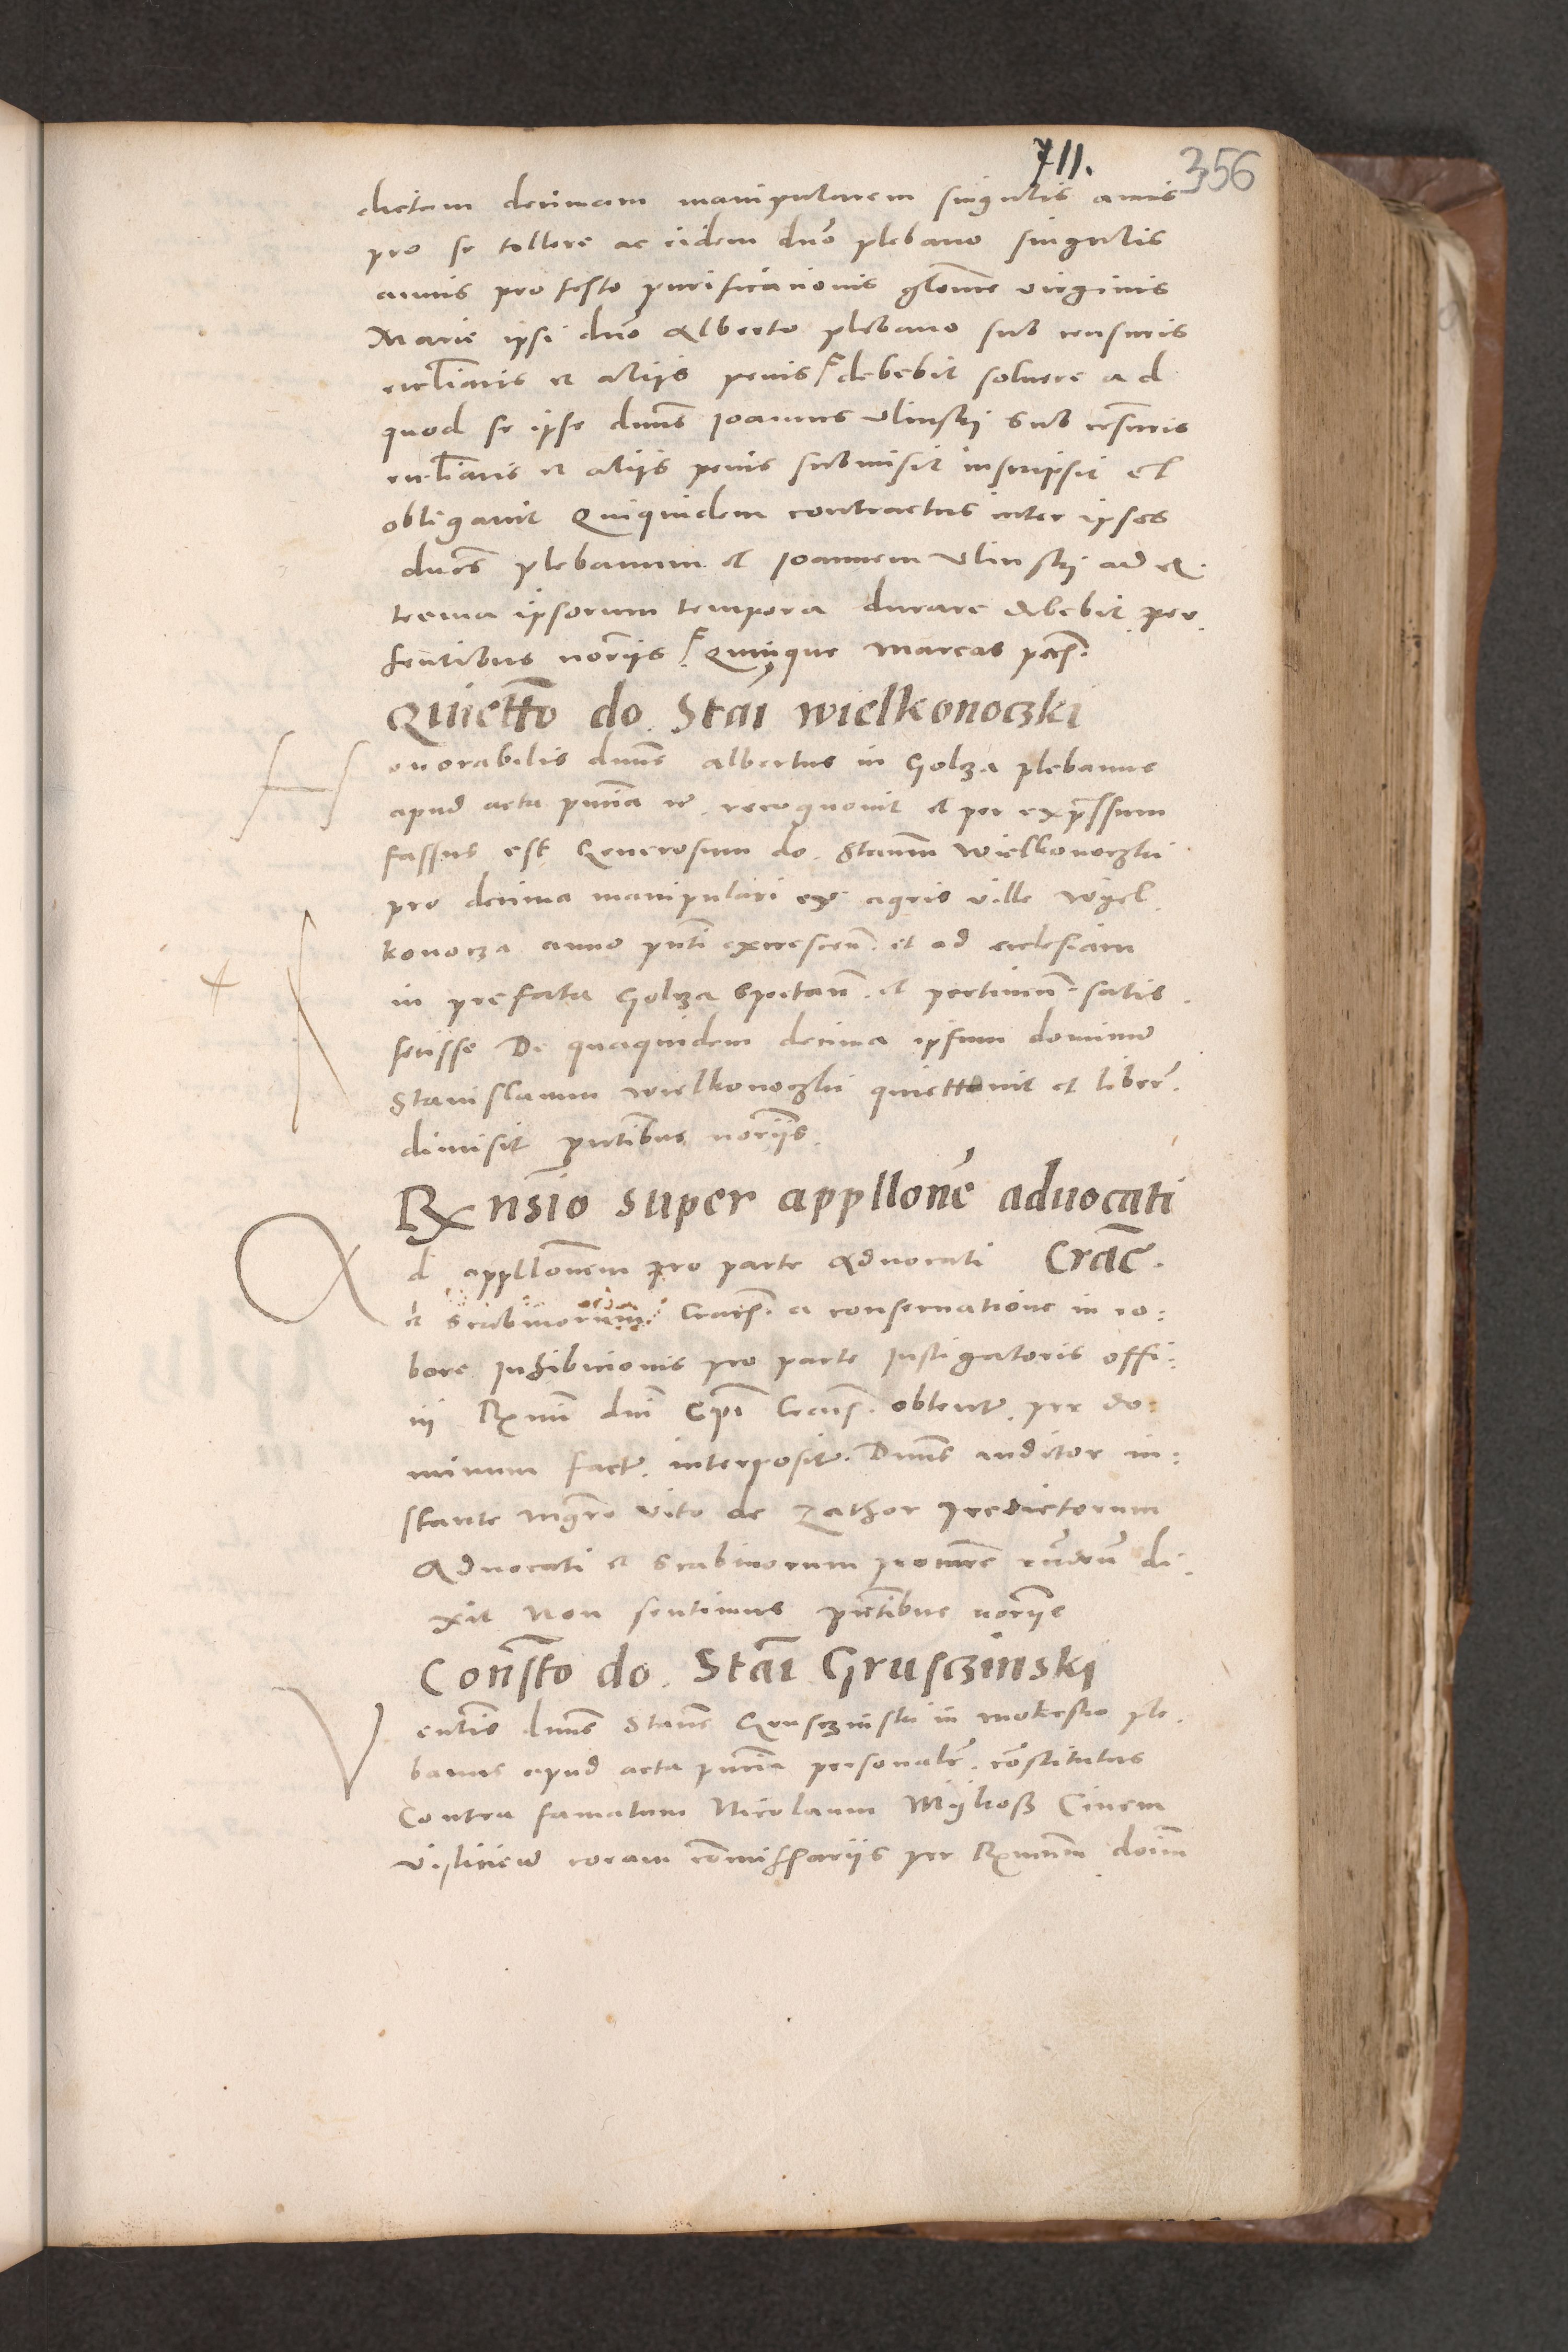 711.
356
dictam decimam manipularem singulis annis
pro se tollere ac eidem dno plebano singulis
annis pro festo purificationis glose virginis
Marie ipsi dno Alberto plebano sub censuris
eccliasticis et aliis penis debebit solvere ad
quod se ipse dnus Joannes Ulinski sub censuris
eccliasticis et aliis penis submisit inscripsit et
obligavit Quiquidem contractus inter ipsos
dnos plebanum et Joannem Ulinski ad ex
trema ipsorum tempora durare debebit pre
sentibus noriis Quinque marcas pecs.
Quiettō do. Stāi wielkonoczki
Honorabilis dnus Albertus in Golcza plebanus
apud acta pntia rc. recognovit et per expressum
fassus est Generosum do. Stanm Wielkonoczki
pro decima manipulari ex agris ville wyel
konocza anno pnti excrescen. et ad ecclesiam
in prefata Golcza spectan. et pertinen. satis
fecisse De quaquidem decima ipsum dominum
Stanislaum Wielkonoczki quiettavit et liber.
dimisit pntibus noriis.
Rxnsio super appllonē advocati
Cracē.
Ad appllonem pro parte Advocati
et scabinorum Cracs. a conservatione in ro:
bore Inhibicionis pro parte Instigatoris offi:
cii Rxmi dni Epi Cracs. obtent. per do:
minum fact. interposit. Dnus auditor in:
stante mgro Vito de Zathor predictorum
Advocati et scabinorum procure rndendo di
xit non sentimus pntibus noriis
Constō do. Stāi Grusczinski
Ventis dnus Stans Grusczinski in mokrsko ple.
banus apud acta pntia personalr. constitutus
Contra famatum Nicolaum Mijkosz Civem
visliciens coram commissariis per Rxmum doim